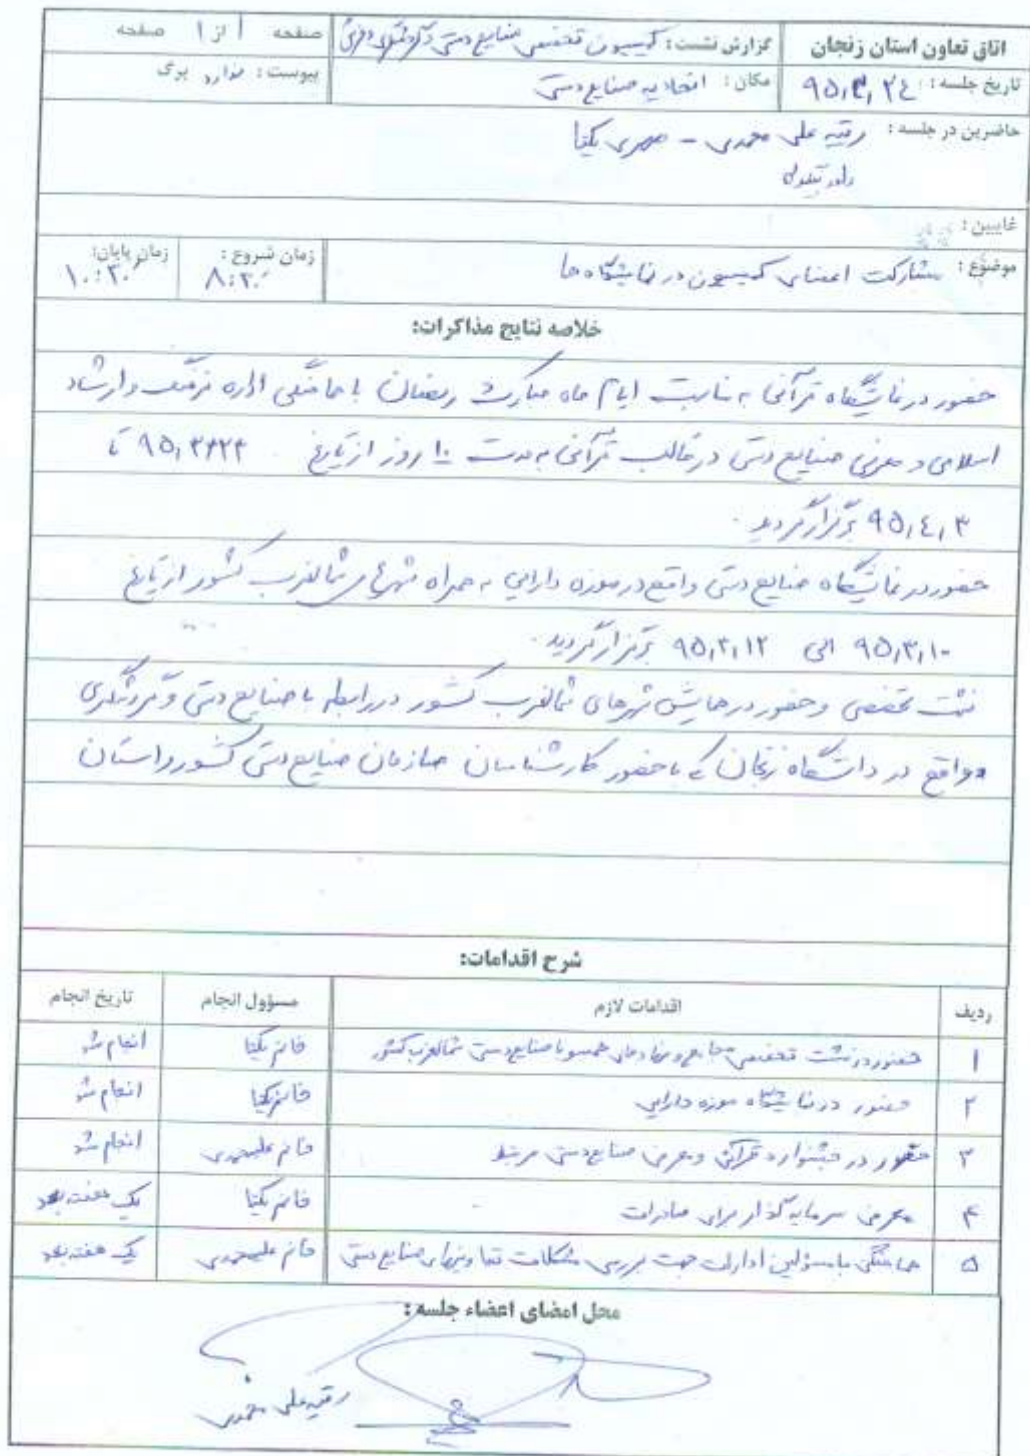 اتاق تعاون استان زنجان
گزارش نشست: کمیسیون تخصصی صنایع دستی و گردشگری و فرش
صفحه ۱ از ۱ صفحه
تاریخ جلسه: ۹۵,۳,۲٤
مکان: اتحادیه صنایع دستی
پیوست: ندارد برگ
حاضرین در جلسه: رقیه علی محمدی - مهری یکتا
غایبین:
موضوع: مشارکت اعضای کمیسیون در نمایشگاه ها
زمان شروع: ۸:۳۰
زمان پایان: ۱۰:۳۰
خلاصه نتایج مذاکرات:
حضور در نمایشگاه قرآنی به مناسبت ایام ماه مبارک رمضان با هماهنگی اداره فرهنگ و ارشاد
اسلامی و معرفی صنایع دستی در قالب قرآنی به مدت ۱۰ روز از تاریخ ۹۵,۳,۲۳ تا
۹۵,٤,۳ برگزار گردید.
حضور در نمایشگاه صنایع دستی واقع در موزه دارایی به همراه شهرهای شمالغرب کشور از تاریخ
۹۵,۳,۱۰ الی ۹۵,۳,۱۲ برگزار گردید.
نشست تخصصی و حضور در همایش شهرهای شمالغرب کشور در رابطه با صنایع دستی و گردشگری
واقع در دانشگاه زنجان که با حضور کارشناسان سازمان صنایع دستی کشور و استان
شرح اقدامات:
ردیف اقدامات لازم مسؤول انجام تاریخ انجام
۱ حضور در نشست تخصصی مجامع و نهادهای همسو با صنایع دستی شمالغرب کشور خانم یکتا انجام شد
۲ حضور در نمایشگاه موزه دارایی خانم یکتا انجام شد
۳ حضور در جشنواره قرآنی و معرفی صنایع دستی مرتبط خانم علیمحمدی انجام شد
۴ معرفی سرمایه گذار برای صادرات خانم یکتا یک هفته بعد
۵ هماهنگی با مسؤلین ادارات جهت بررسی مشکلات تعاونیهای صنایع دستی خانم علیمحمدی یک هفته بعد
محل امضای اعضاء جلسه:
رقیه علی محمدی